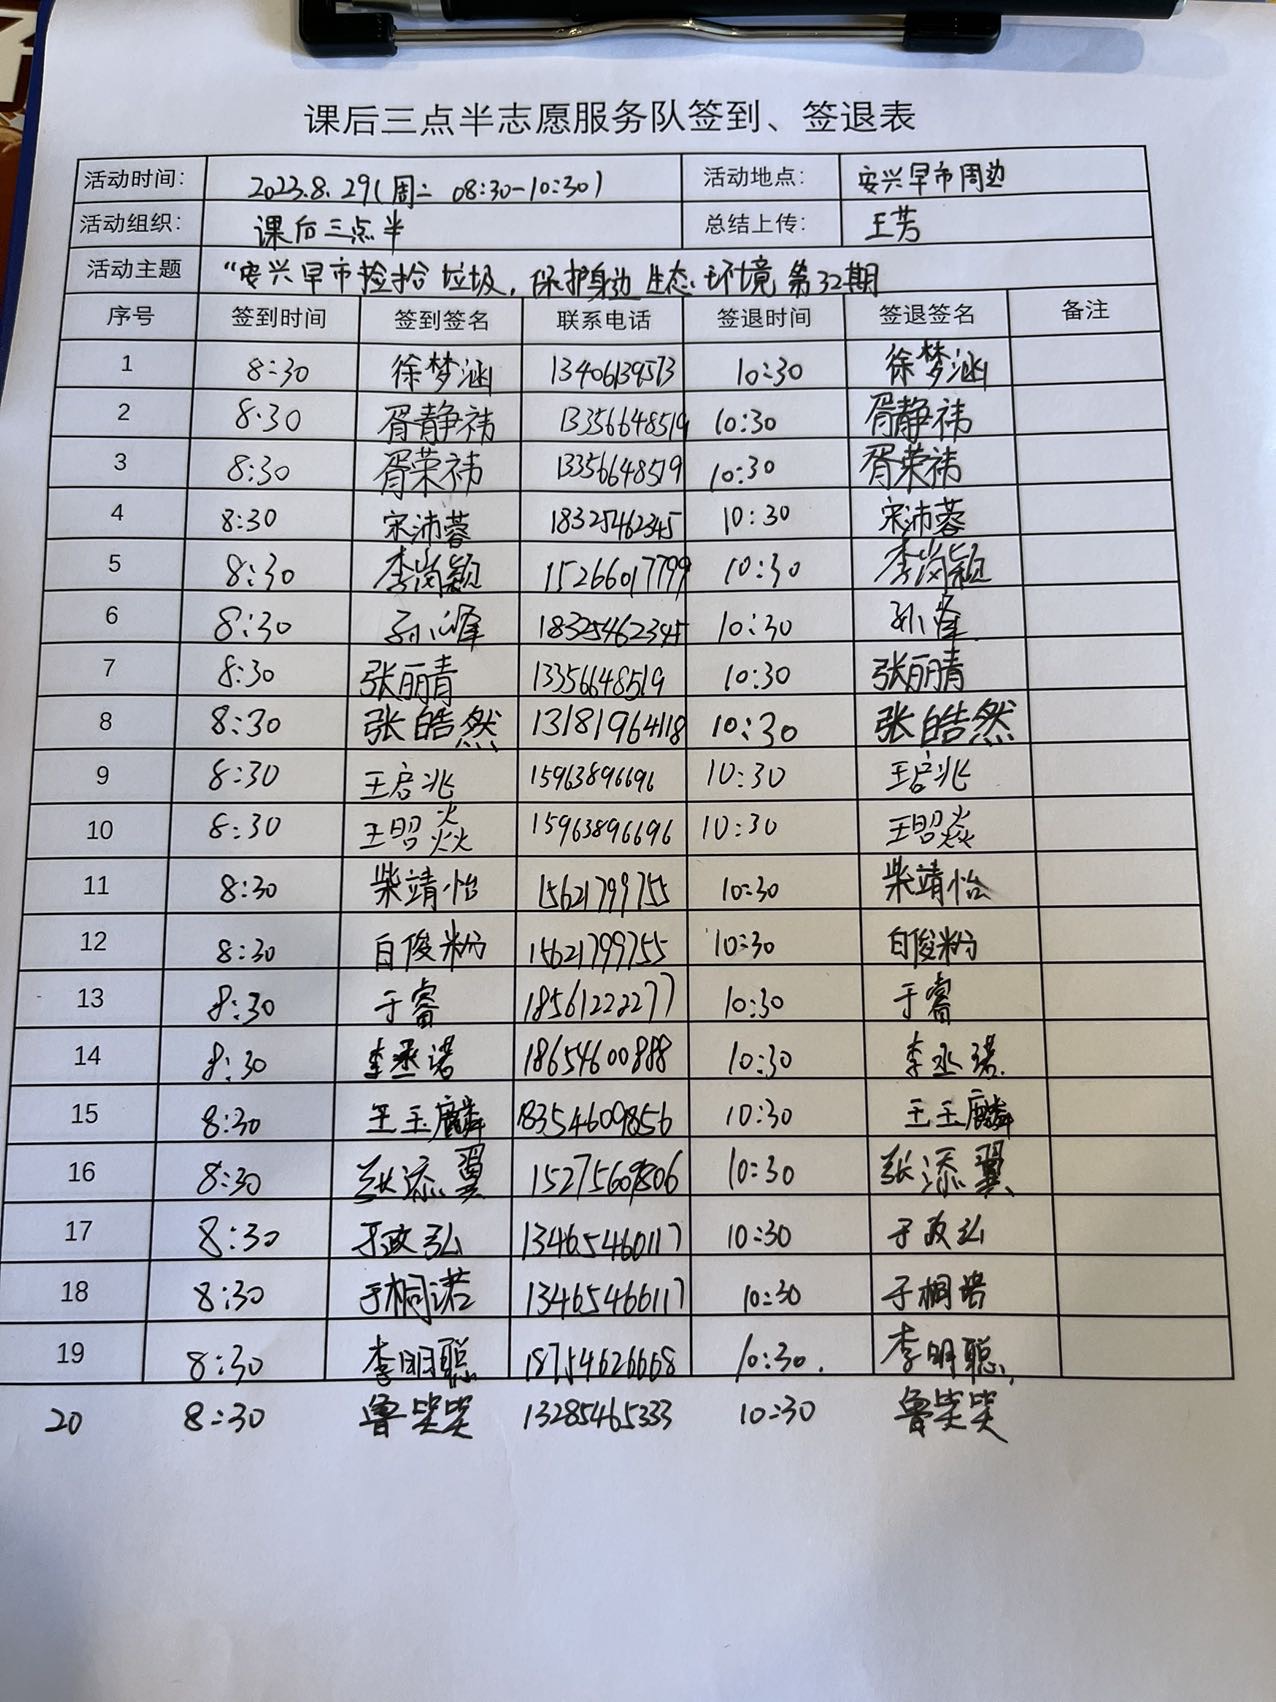 课后三点半志愿服务队签到、签退表
活动时间： 2023.8.29（周二 08:30-10:30） 活动地点： 安兴早市周边
活动组织： 课后三点半 总结上传： 王芳
活动主题 “安兴早市捡拾垃圾，保护身边生态环境第32期
序号 签到时间 签到签名 联系电话 签退时间 签退签名 备注
1 8:30 徐梦涵 13406139573 10:30 徐梦涵
2 8:30 胥静祎 13356648519 10:30 胥静祎
3 8:30 胥荣祎 13356648519 10:30 胥荣祎
4 8:30 宋沛蓉 18325462345 10:30 宋沛蓉
5 8:30 15266017799 10:30
6 8:30 18325462345 10:30
7 8:30 张丽青 13356648519 10:30 张丽青
8 8:30 张皓然 13181964118 10:30 张皓然
9 8:30 王启兆 15963896696 10:30 王启兆
10 8:30 王曌焱 15963896696 10:30 王曌焱
11 8:30 柴靖怡 15621799755 10:30 柴靖怡
12 8:30 白俊粉 15621799755 10:30 白俊粉
13 8:30 于睿 18561222277 10:30 于睿
14 8:30 李丞诺 18654600888 10:30 李丞诺
15 8:30 王玉麟 18354609856 10:30 王玉麟
16 8:30 张添翼 15275609806 10:30 张添翼
17 8:30 于政弘 13465460117 10:30 于政弘
18 8:30 于桐诺 13465466117 10:30 于桐诺
19 8:30 李明聪 18754626668 10:30. 李明聪
20 8:30 鲁笑笑 13285465333 10:30 鲁笑笑